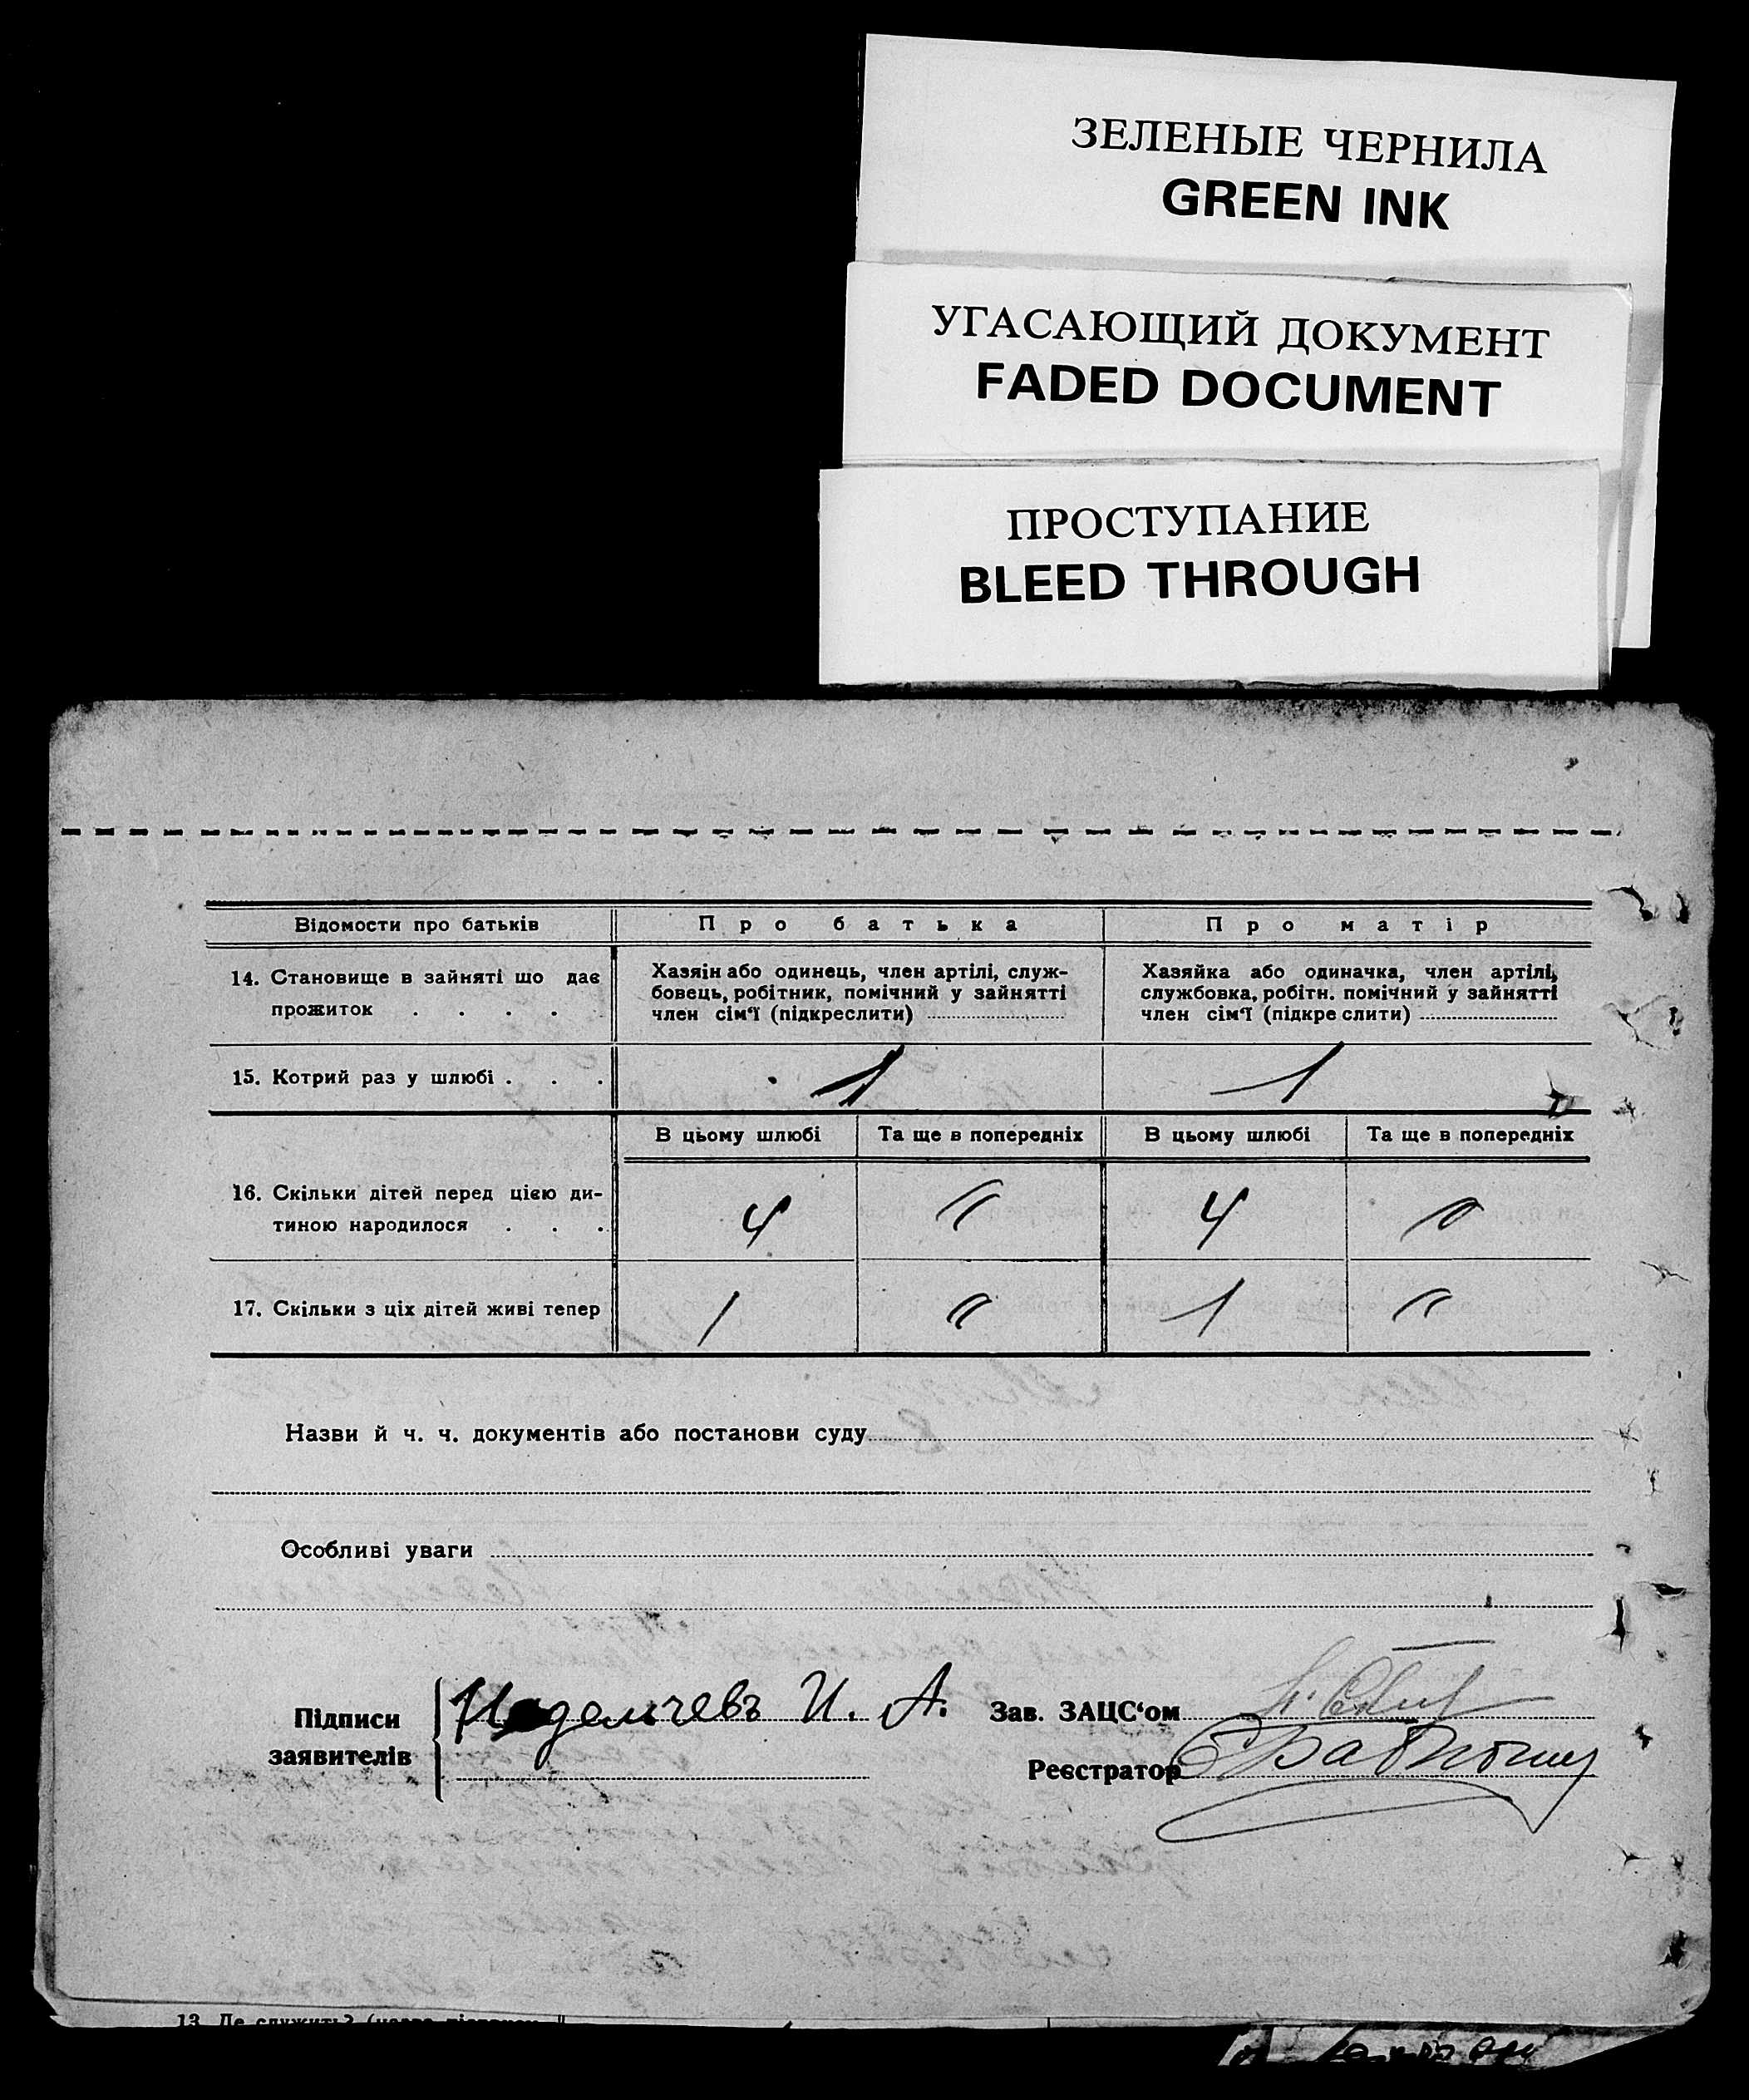 ЗЕЛЕНЫЕ ЧЕРНИЛА
GREEN INK
УГАСАЮЩИЙ ДОКУМЕНТ
FADED DOCUMENT
ПРОСТУПАНИЕ
BLEED THROUGH
Відомости про батьків Про батька Про матір
14. Становище в зайняті що дає прожиток . . . . .
Хазяін або одинець, член артілі, служ-
бовець, робітник, помічний у зайнятті
член сім'ї (підкреслити)
Хазяйка або одиначка, член артілі,
службовка, робітн. помічний у зайнятті
член сім'ї (підкреслити)
15. Котрий раз у шлюбі . . . 1 1
В цьому шлюбі Та ще в попередніх В цьому шлюбі Та ще в попередніх
16. Скільки дітей перед цією ди-
тиною народилося . . . 4 〃 4 〃
17. Скільки з ціх дітей живі тепер 1 〃 1 〃
Назви й ч. ч. документів або постанови суду
Особливі уваги
Підписи
заявителів
Недельчевъ И. А.
Зав. ЗАЦС'ом
Реєстратор